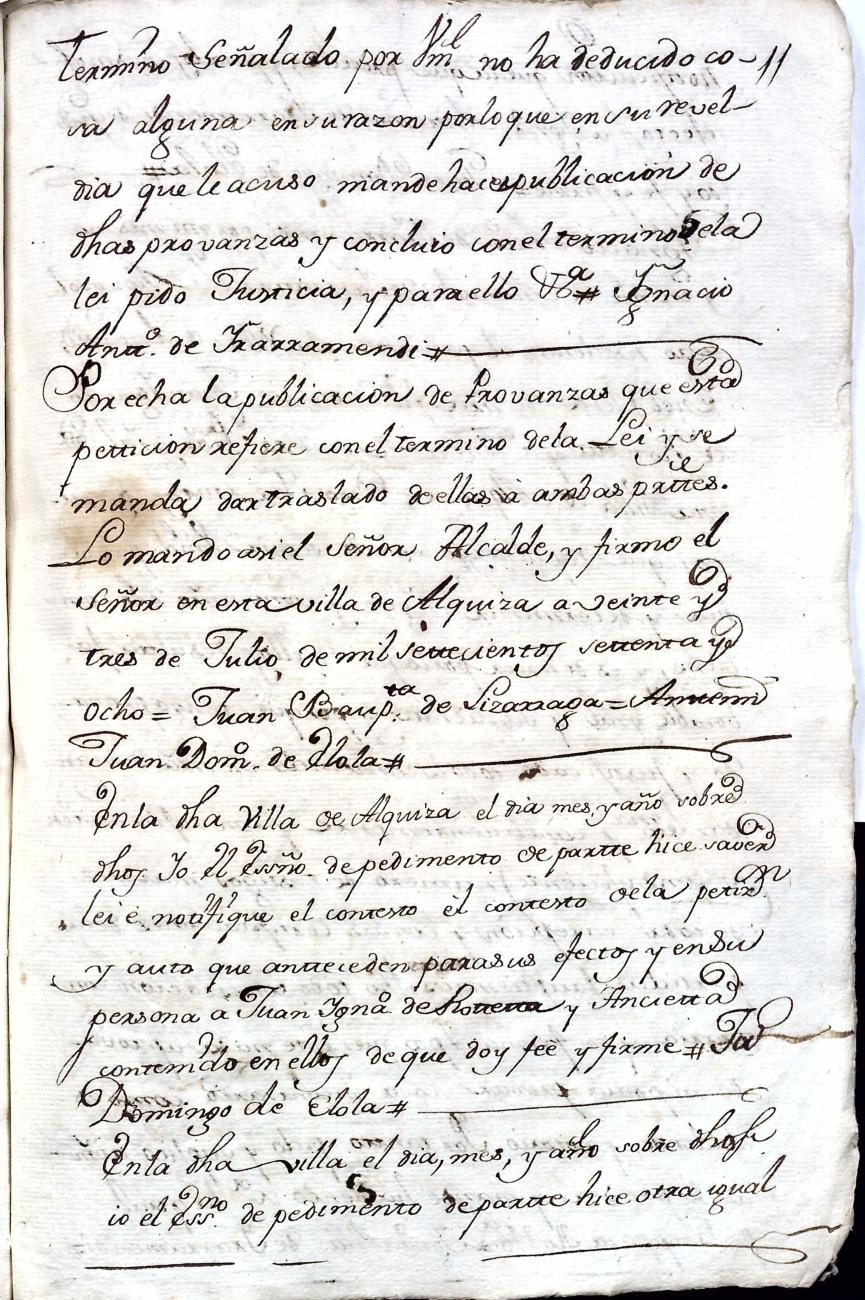 termino Señalado por Vm no ha deducido co- 11
sa alguna en su razon porloque en su revel-
dia que le acuso mande hacer publicacion de
dhas provanzas y concluio con el termino dela
lei pido Justicia, y para ello Vª # Ygnacio
Antº. de Yrarramendi #
Por echa la publicacion de Provanzas que esta
petticion refiere con el termino dela Lei y se
manda dar traslado de ellas a ambas prttes.
Lo mando asi el Señor Alcalde, y firmo el
Señor en esta villa de Alquiza a veinte y
tres de Julio de mil settecientos settenta y
ocho = Juan Baupta. de Lizarraga = Antemi
Juan Domº. de Elola #
En la dha Villa de Alquiza el dia mes, y año sobre
dhos Yo El Essño. de pedimento de partte hice saver
lei é notifique el contesto el contesto dela petizn
y auto que antteceden para sus efectos y en su
persona a Juan Ygnª. de y Ancietta
contenido en ellos de que doy feé y firme # Jun
Domingo de Elola #
En la dha villa el dia, mes, y año sobre dhos
io el Essno. de pedimento de partte hice otra igual